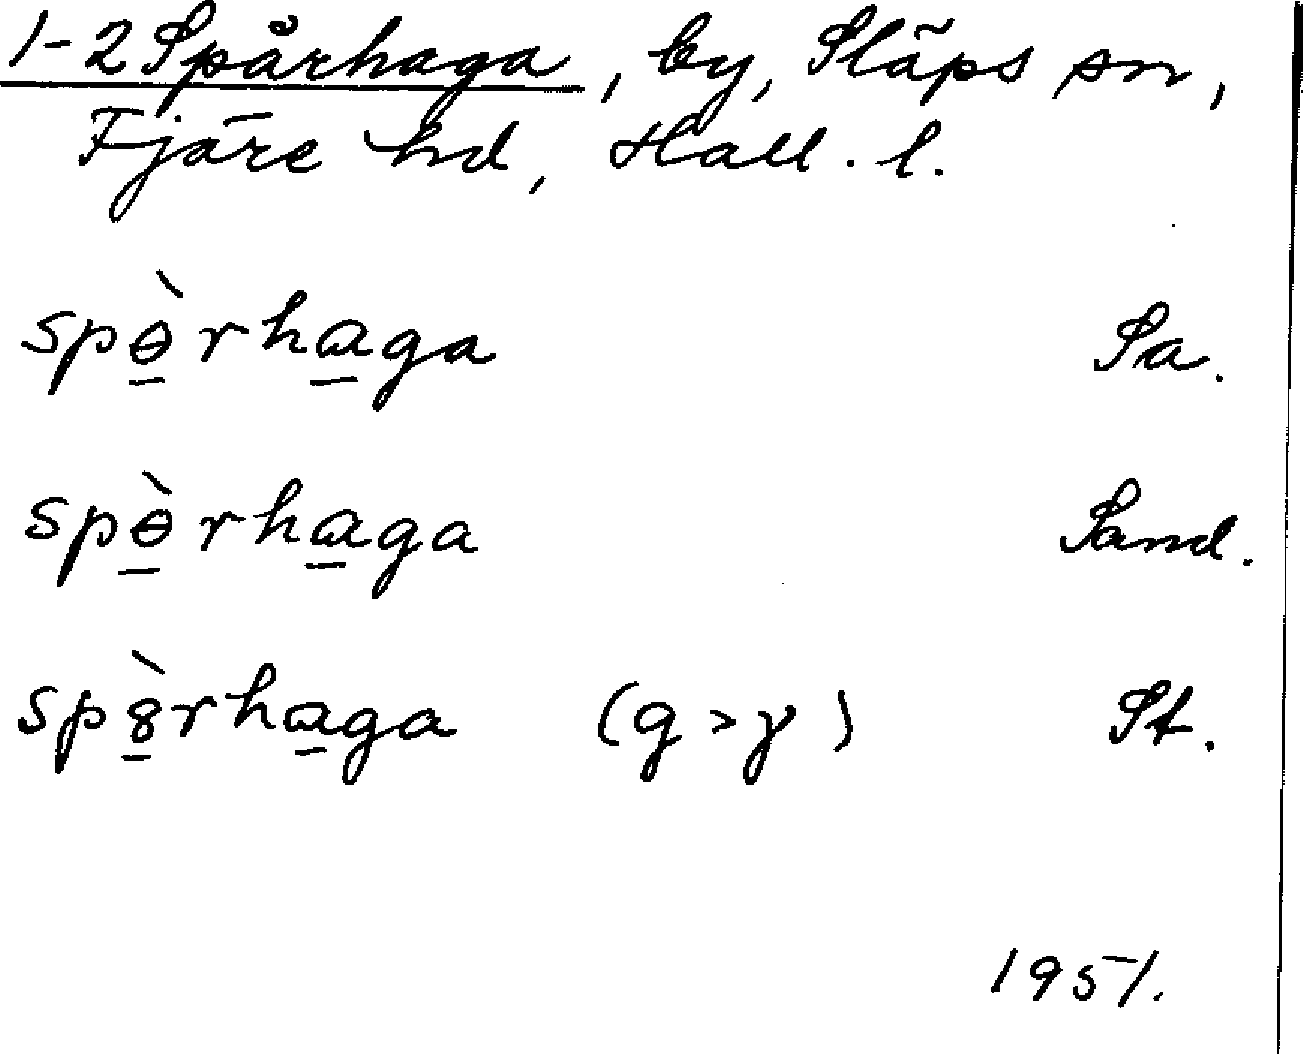 1-2 Spårhaga, by, Släps sn,
Fjäre hd, Hall. l.
spɵ̠̀rha̠ga Sa.
spɵ̠̀rha̠ga Sand.
sp8̠̀rha̠ga (g>γ) St.
1951.